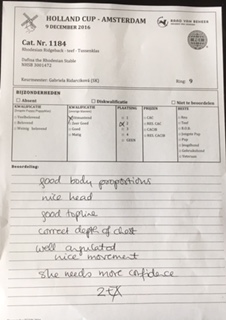 HOLLAND CUP - AMSTERDAM
9 DECEMBER 2016
Cat. Nr. 1184
Rhodesian Ridgeback - teef - Tussenklas
NHSB 3001472
Keurmeester: Gabriela Ridarciková (SK)
Ring: 9
BIJZONDERHEDEN
Absent
Diskwalificatie
Niet te beoordelen
KWALIFICATIE
KWALIFICATIE
PLAATSING
PRIJZEN
BESTE
Veelbelovend
Uitmuntend
1
CAC
Belovend
Zeer Goed
2
RES. CAC
Weinig belovend
Goed
3
CACIB
Matig
4
RES. CACIB
Beoordeling:
good body proportions
nice head
good topline
correct depth of chest
well angulated
nice movement
she needs more confidence